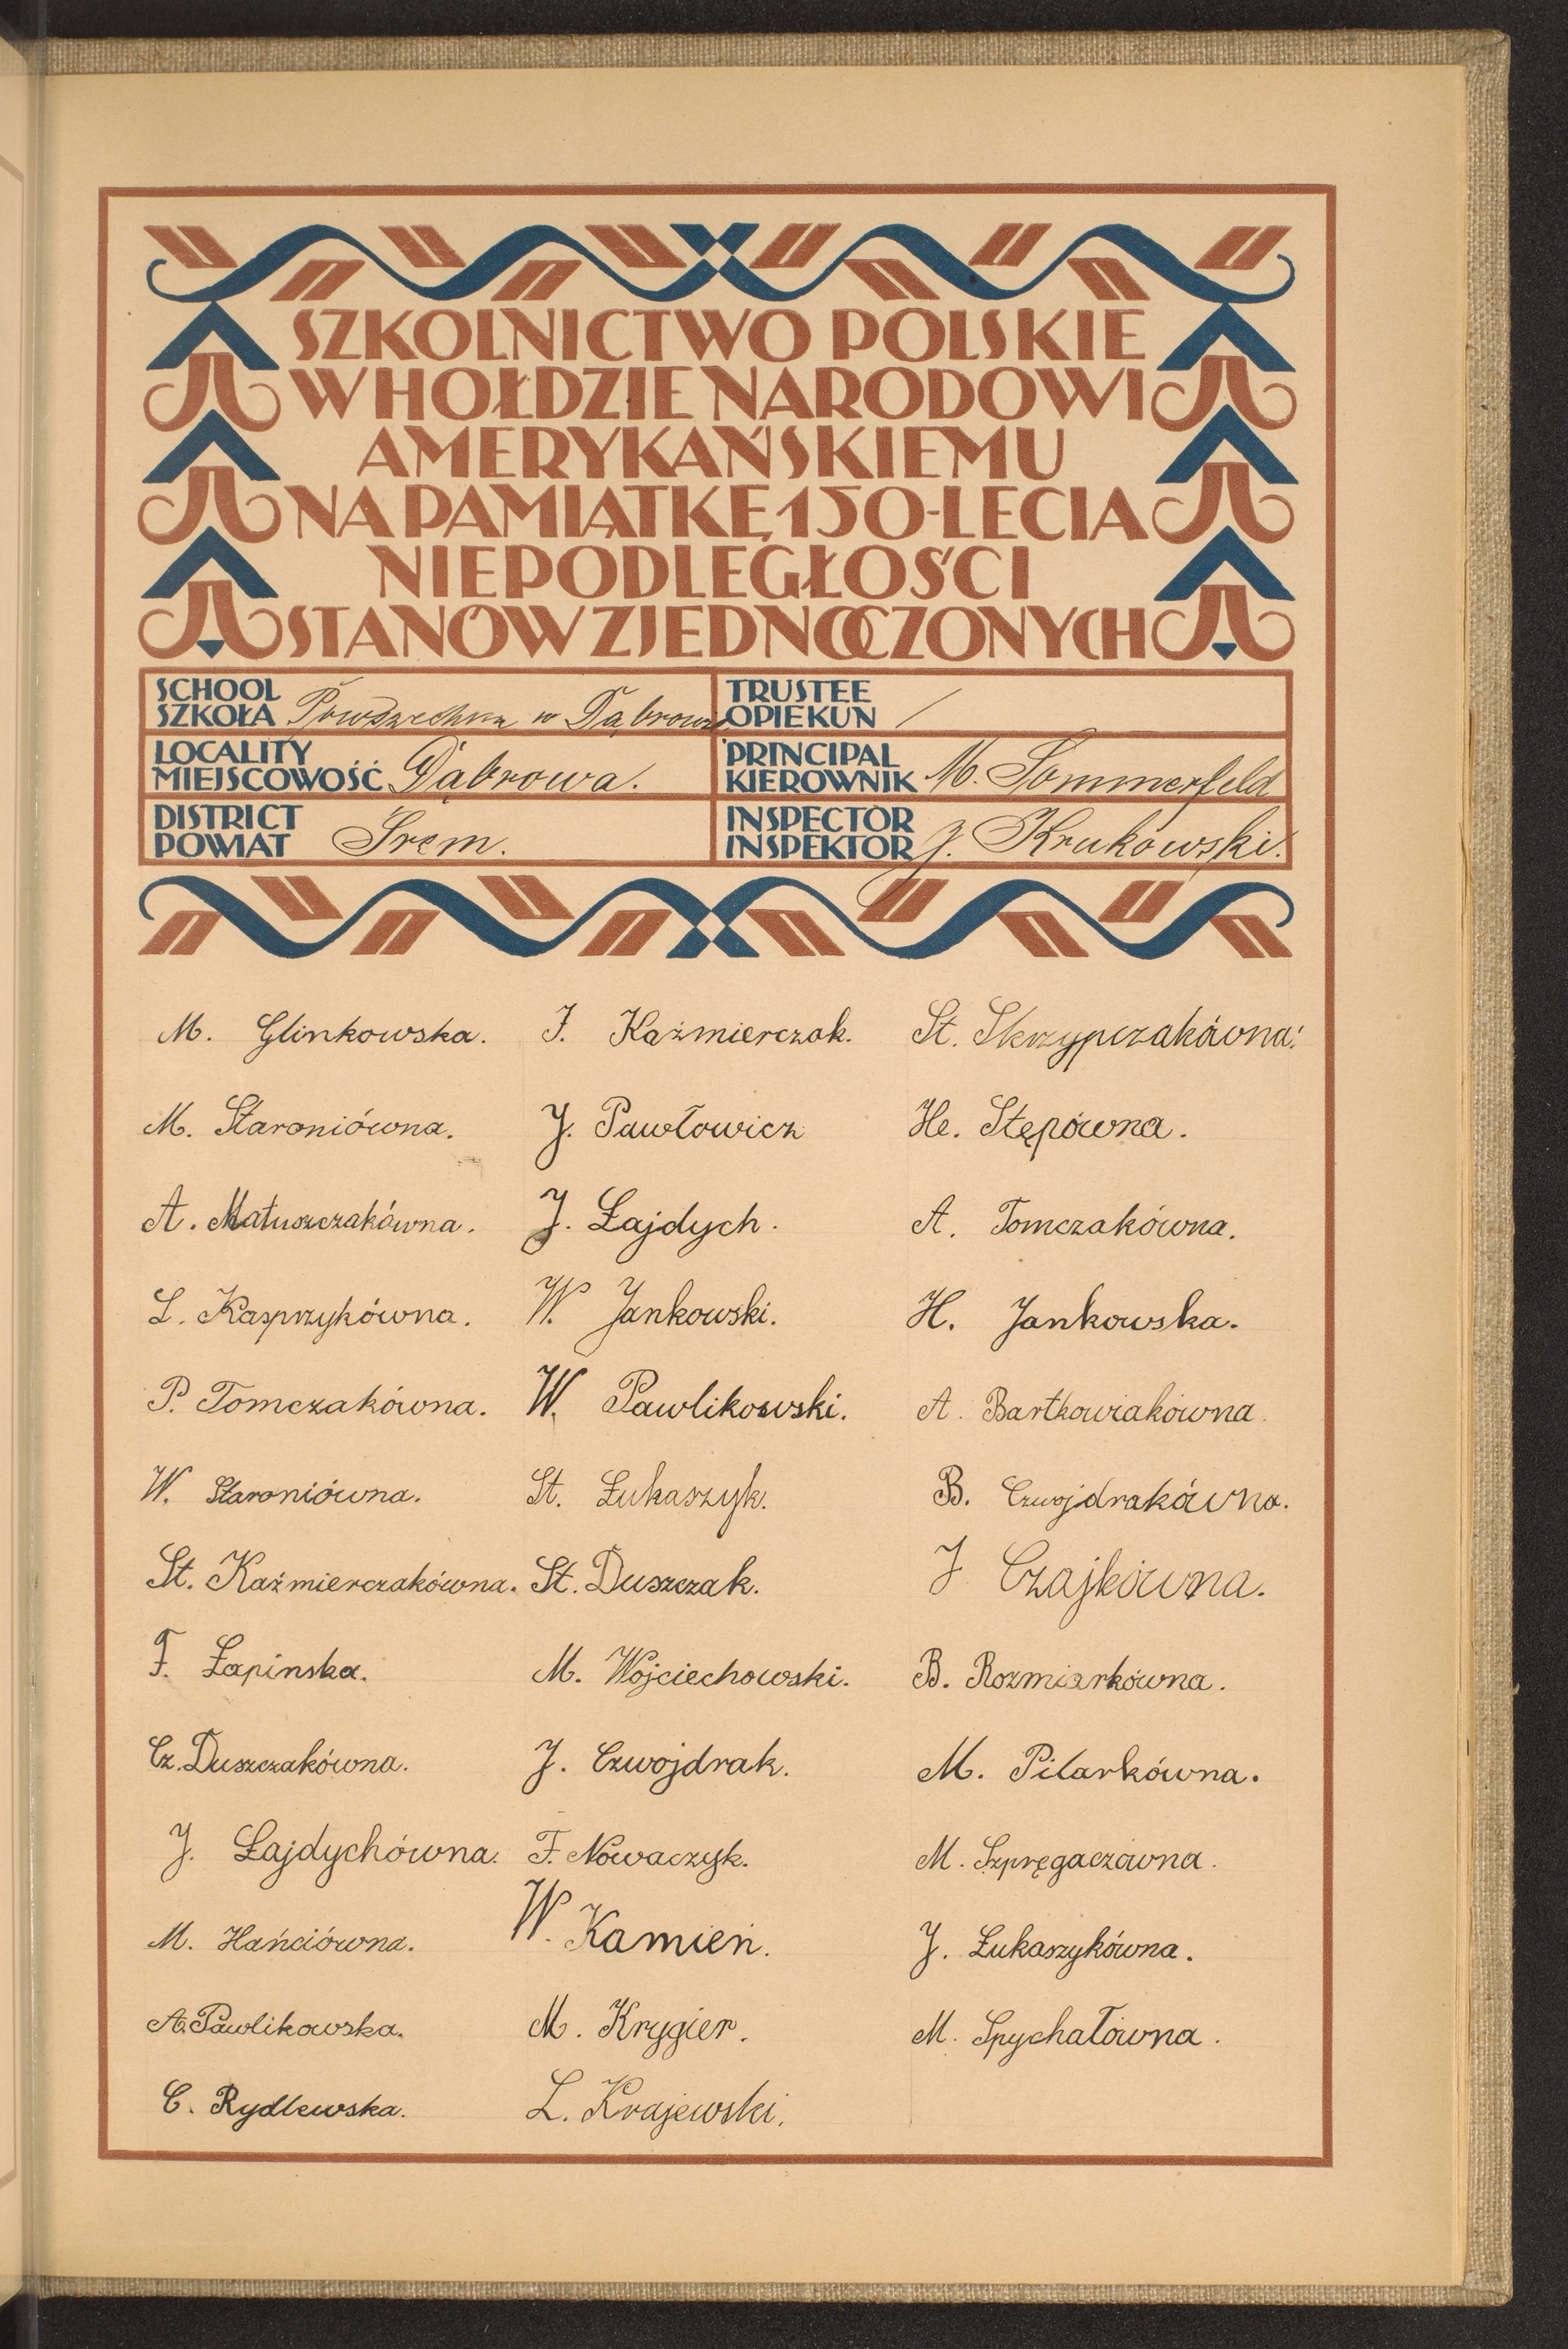 SZKOLNICTWO POLSKIE
W HOŁDZIE NARODOWI
AMERYKAŃSKIEMU
NA PAMIĄTKĘ 150-LECIA
NIEPODLEGŁOŚCI
STANÓW ZJEDNOCZONYCH
SCHOOL
SZKOŁA Powszechna w Dąbrowie
TRUSTEE
OPIEKUN /
LOCALITY
MIEJSCOWOŚĆ Dąbrowa.
PRINCIPAL
KIEROWNIK M. Sommerfeld
DISTRICT
POWIAT Śrem.
INSPECTOR
INSPEKTOR J. Krukowski.
M. Glinkowska.
M. Staroniówna.
A. Matuszczakówna.
L. Kasprzykówna.
P. Tomczakówna.
W. Staroniówna.
St. Kaźmierczakówna.
F. Łapinska.
Cz. Duszczakówna.
J. Łajdychówna.
M. Hańciówna.
A. Pawlikowska.
C. Rydlewska.
F. Kaźmierczak.
J. Pawłowicz
J. Łajdych.
W. Jankowski.
W. Pawlikowski.
St. Łukaszyk.
St. Duszczak.
M. Wojciechowski.
J. Czwojdrak.
F. Nowaczyk.
W. Kamień.
M. Krygier.
L. Krajewski.
St. Skrzypczakówna.
He. Stępówna.
A. Tomczakówna.
H. Jankowska.
A. Bartkowiakówna.
B. Czwojdrakówna.
J Czajkówna.
B. Rozmiarkówna.
M. Pilarkówna.
M. Szpręgaczówna.
J. Łukaszykówna.
M. Spychałówna.